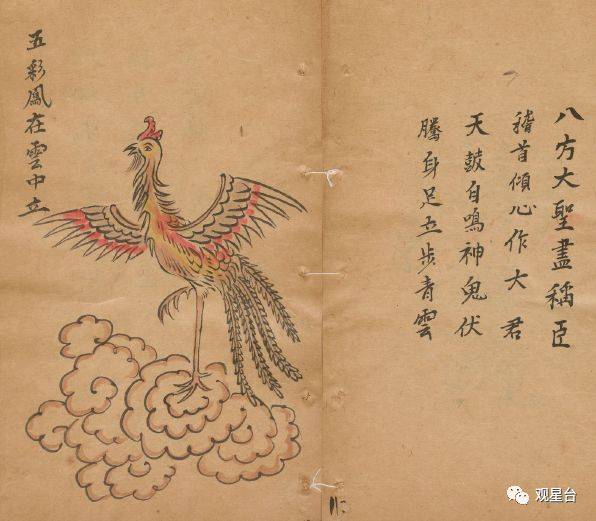 八方大聖盡稱臣
稽首傾心作大君
天鼓自鳴神鬼伏
騰身足立步青雲
五彩鳳在雲中立
观星台